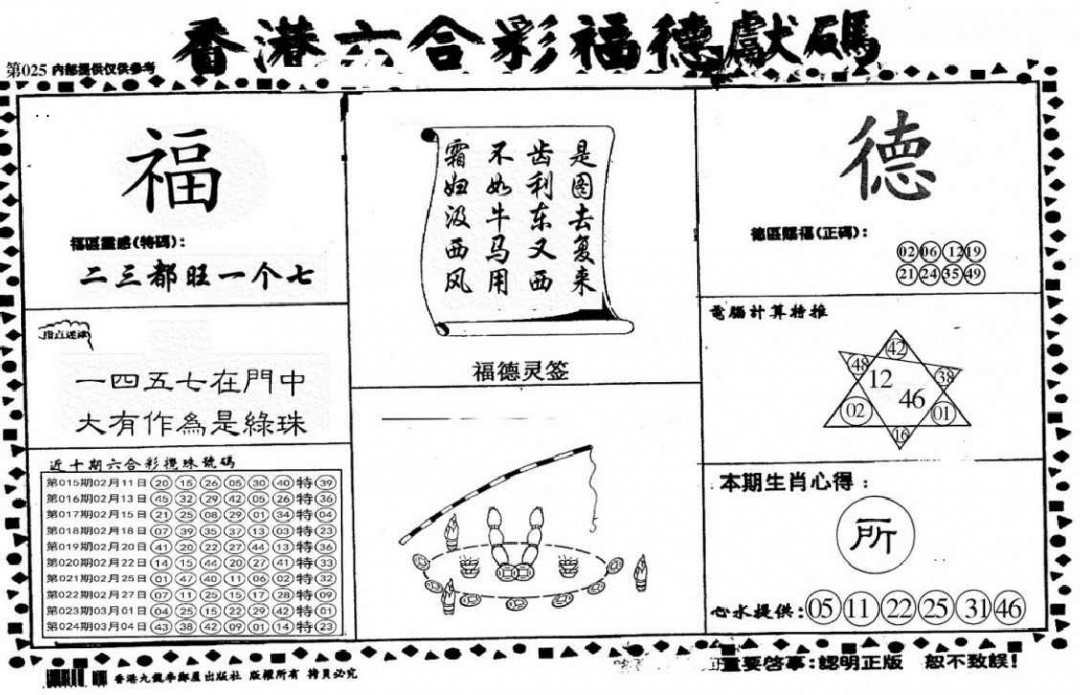 香港六合彩福德獻碼
第025 内部提供仅供参考
福
福區靈感(特碼):
二三都旺一个七
指点迷津
一四五七在門中
大有作為是綠珠
近十期六合彩攪珠號碼
第015期02月11日 20 15 26 05 30 40 特 39
第016期02月13日 45 32 29 42 05 26 特 36
第017期02月15日 21 25 08 29 01 34 特 04
第018期02月18日 07 39 35 37 13 03 特 23
第019期02月20日 41 20 22 27 44 13 特 36
第020期02月22日 14 15 44 20 27 41 特 33
第021期02月25日 01 47 40 11 06 02 特 32
第022期02月27日 07 11 25 15 17 28 特 09
第023期03月01日 04 25 15 22 29 42 特 01
第024期03月04日 43 38 42 09 01 14 特 23
是图去复来
齿利东又西
不如牛马用
霜妇汲西风
福德灵签
德
德區賜福(正碼):
02 06 12 19
21 24 35 49
電腦計算特推
42
48 38
12
46
02 01
16
本期生肖心得:
所
心水提供: 05 11 22 25 31 46
香港九龍李鄭屋出版社 版權所有 拷貝必究
重要啓事:認明正版 般不致誤!